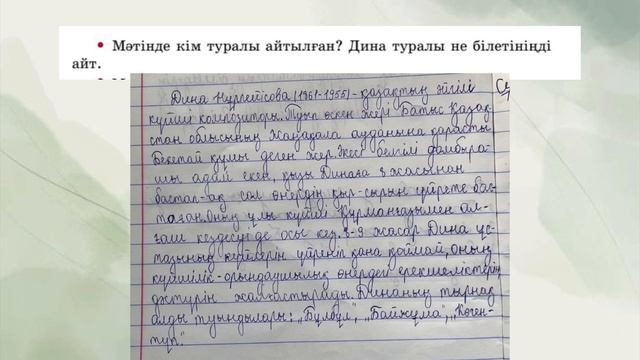 • Мәтінде кім туралы айтылған? Дина туралы не білетініңді
айт.
Дина Нұрпейісова (1861-1955) - қазақтың әйгілі
күйші композиторы. Туып өскен жері Батыс Қазақ-
стан облысының Жаңақала ауданына қарасты
Бекетай құмы деген жер. Әкесі белгілі домбыра-
шы адам екен, қызы Динаға жасынан
бастап-ақ сол өнердің қыр-сырын үйрете бас-
таған. Оның ұлы күйші Құрманғазымен ал-
ғаш кездесуі де осы кез. 8-9 жасар Дина ұс-
тазының күйлерін үйреніп қана қоймай, оның
күйшілік-орындаушылық өнердегі ерекшеліктерін
дәстүрін жалғастырады. Динаның тырнақ
алды туындылары: "Бұлбұл", "Байжұма", "Көген-
түп".